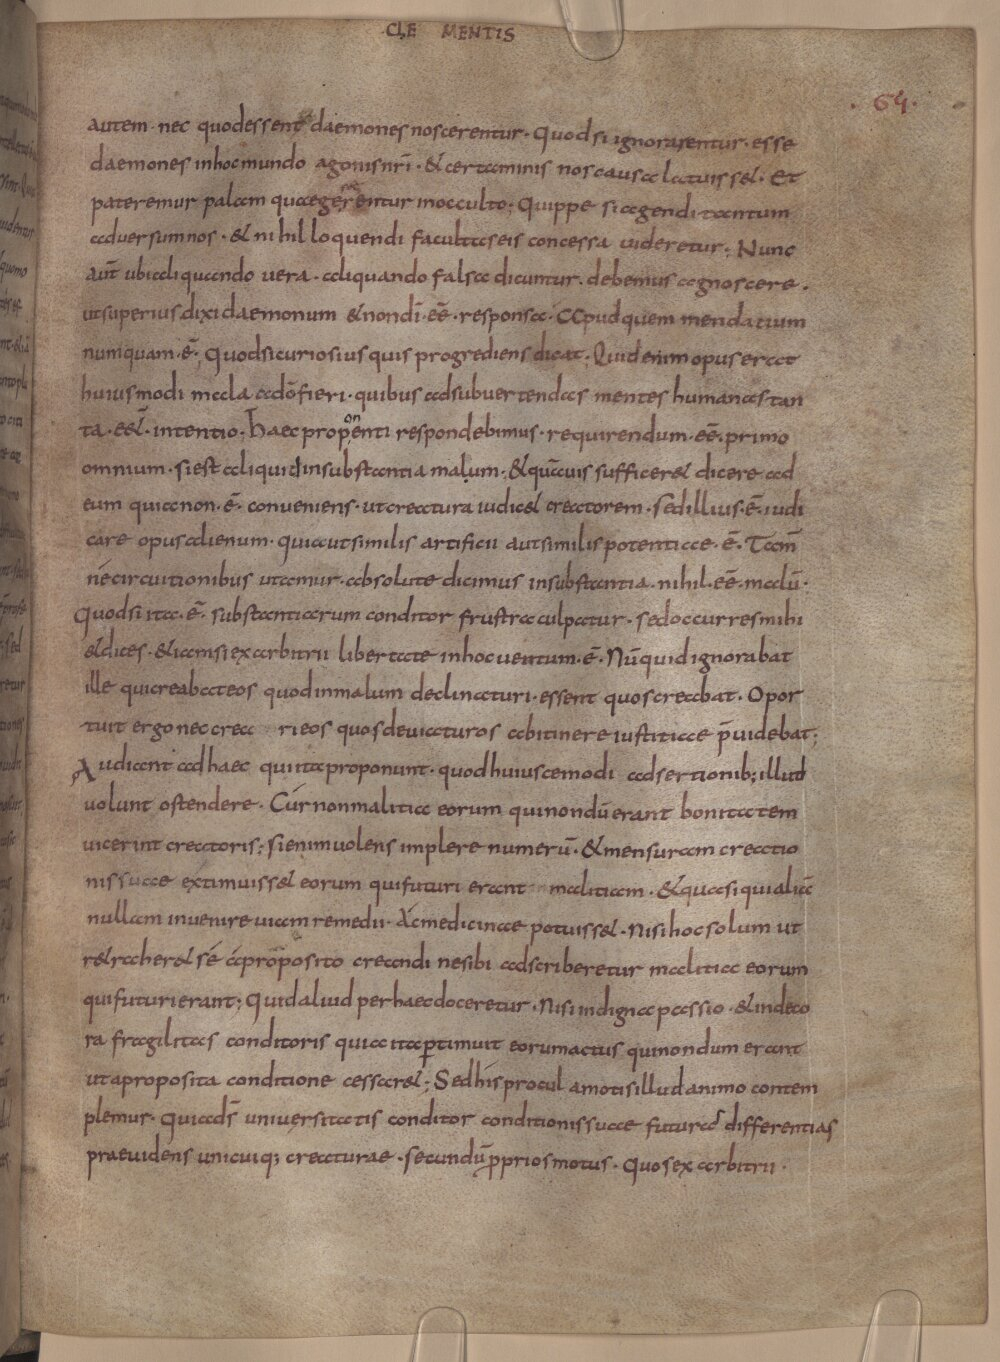 CLE MENTIS
64.
autem · nec quod essent daemones noscerentur · Quod si ignorarentur · esse
daemones inhocmundo agonis nr̄i · & certaminis nos causa latuiss& · Et
pateremur palam quae gererentur inocculto; Quippe si agendi tantum
adversum nos · & nihil loquendi facultas eis concessa videretur; Nunc
aut̄ ubi aliquando vera · aliquando falsa dicuntur · debemus agnoscere ·
ut superius dixi daemonum & non dī · eē · responsa · Apud quem mendatium
numquam · ē; Quod si curiosius quis progrediens dicat; Quid enim opus erat
huiusmodi mala ad dō fieri · quibus ad subvertendas mentes humanas tan
ta · eēt · intentio; Haec proponenti respondebimus · requirendum · eē · primo
omnium · si est aliquid insubstantia malum; & quāvis sufficer& dicere ad
eum quia non · ē · conveniens · ut creatura iudic& creatorem · sed illius · ē · iudi
care opus alienum · quia ut similis artificii aut similis potentiae · ē · Tam̄
ne circuitionibus utamur · absolute dicimus in substantia · nihil · eē · malū ·
Quod si ita · ē · substantiarum conditor frustra culpatur · sed occurres mihi
& dices · & iam si ex arbitrii libertate in hoc ventum · ē · Nūquid ignorabat
ille qui creabat eos quod in malum declinaturi · essent quos creabat · Opor
tuit ergo nec crea ri eos quos deviaturos ab itinere iustitiae p̄videbat;
Audiant ad haec qui ita proponunt · quod huiuscemodi adsertionib; illud
volunt ostendere · Cur non malitia eorum qui nondū erant bonitatem
vicerint creatoris; si enim volens implere numerū · & mensuram creatio
nis suae extimuiss& eorum qui futuri erant malitiam · & quasi qui aliā
nullam invenire viam remedii · Ac medicinae potuiss& · Nisi hoc solum ut
r&raher& se a proposito creandi ne sibi adscriberetur malitia eorum
qui futuri erant; Quid aliud per haec doceretur · Nisi indigna passio · & indeco
ra fragilitas conditoris qui ea ita ptimuit eorum actus qui nondum erant
ut a proposita conditione cessar&; Sed his procul amotis illud animo contem
plemur · Quia ds̄ universitatis conditor conditionis suae futuras differentias
praevidens unicuiq; creaturae · secundū pprios motus · Quos ex arbitrii ·